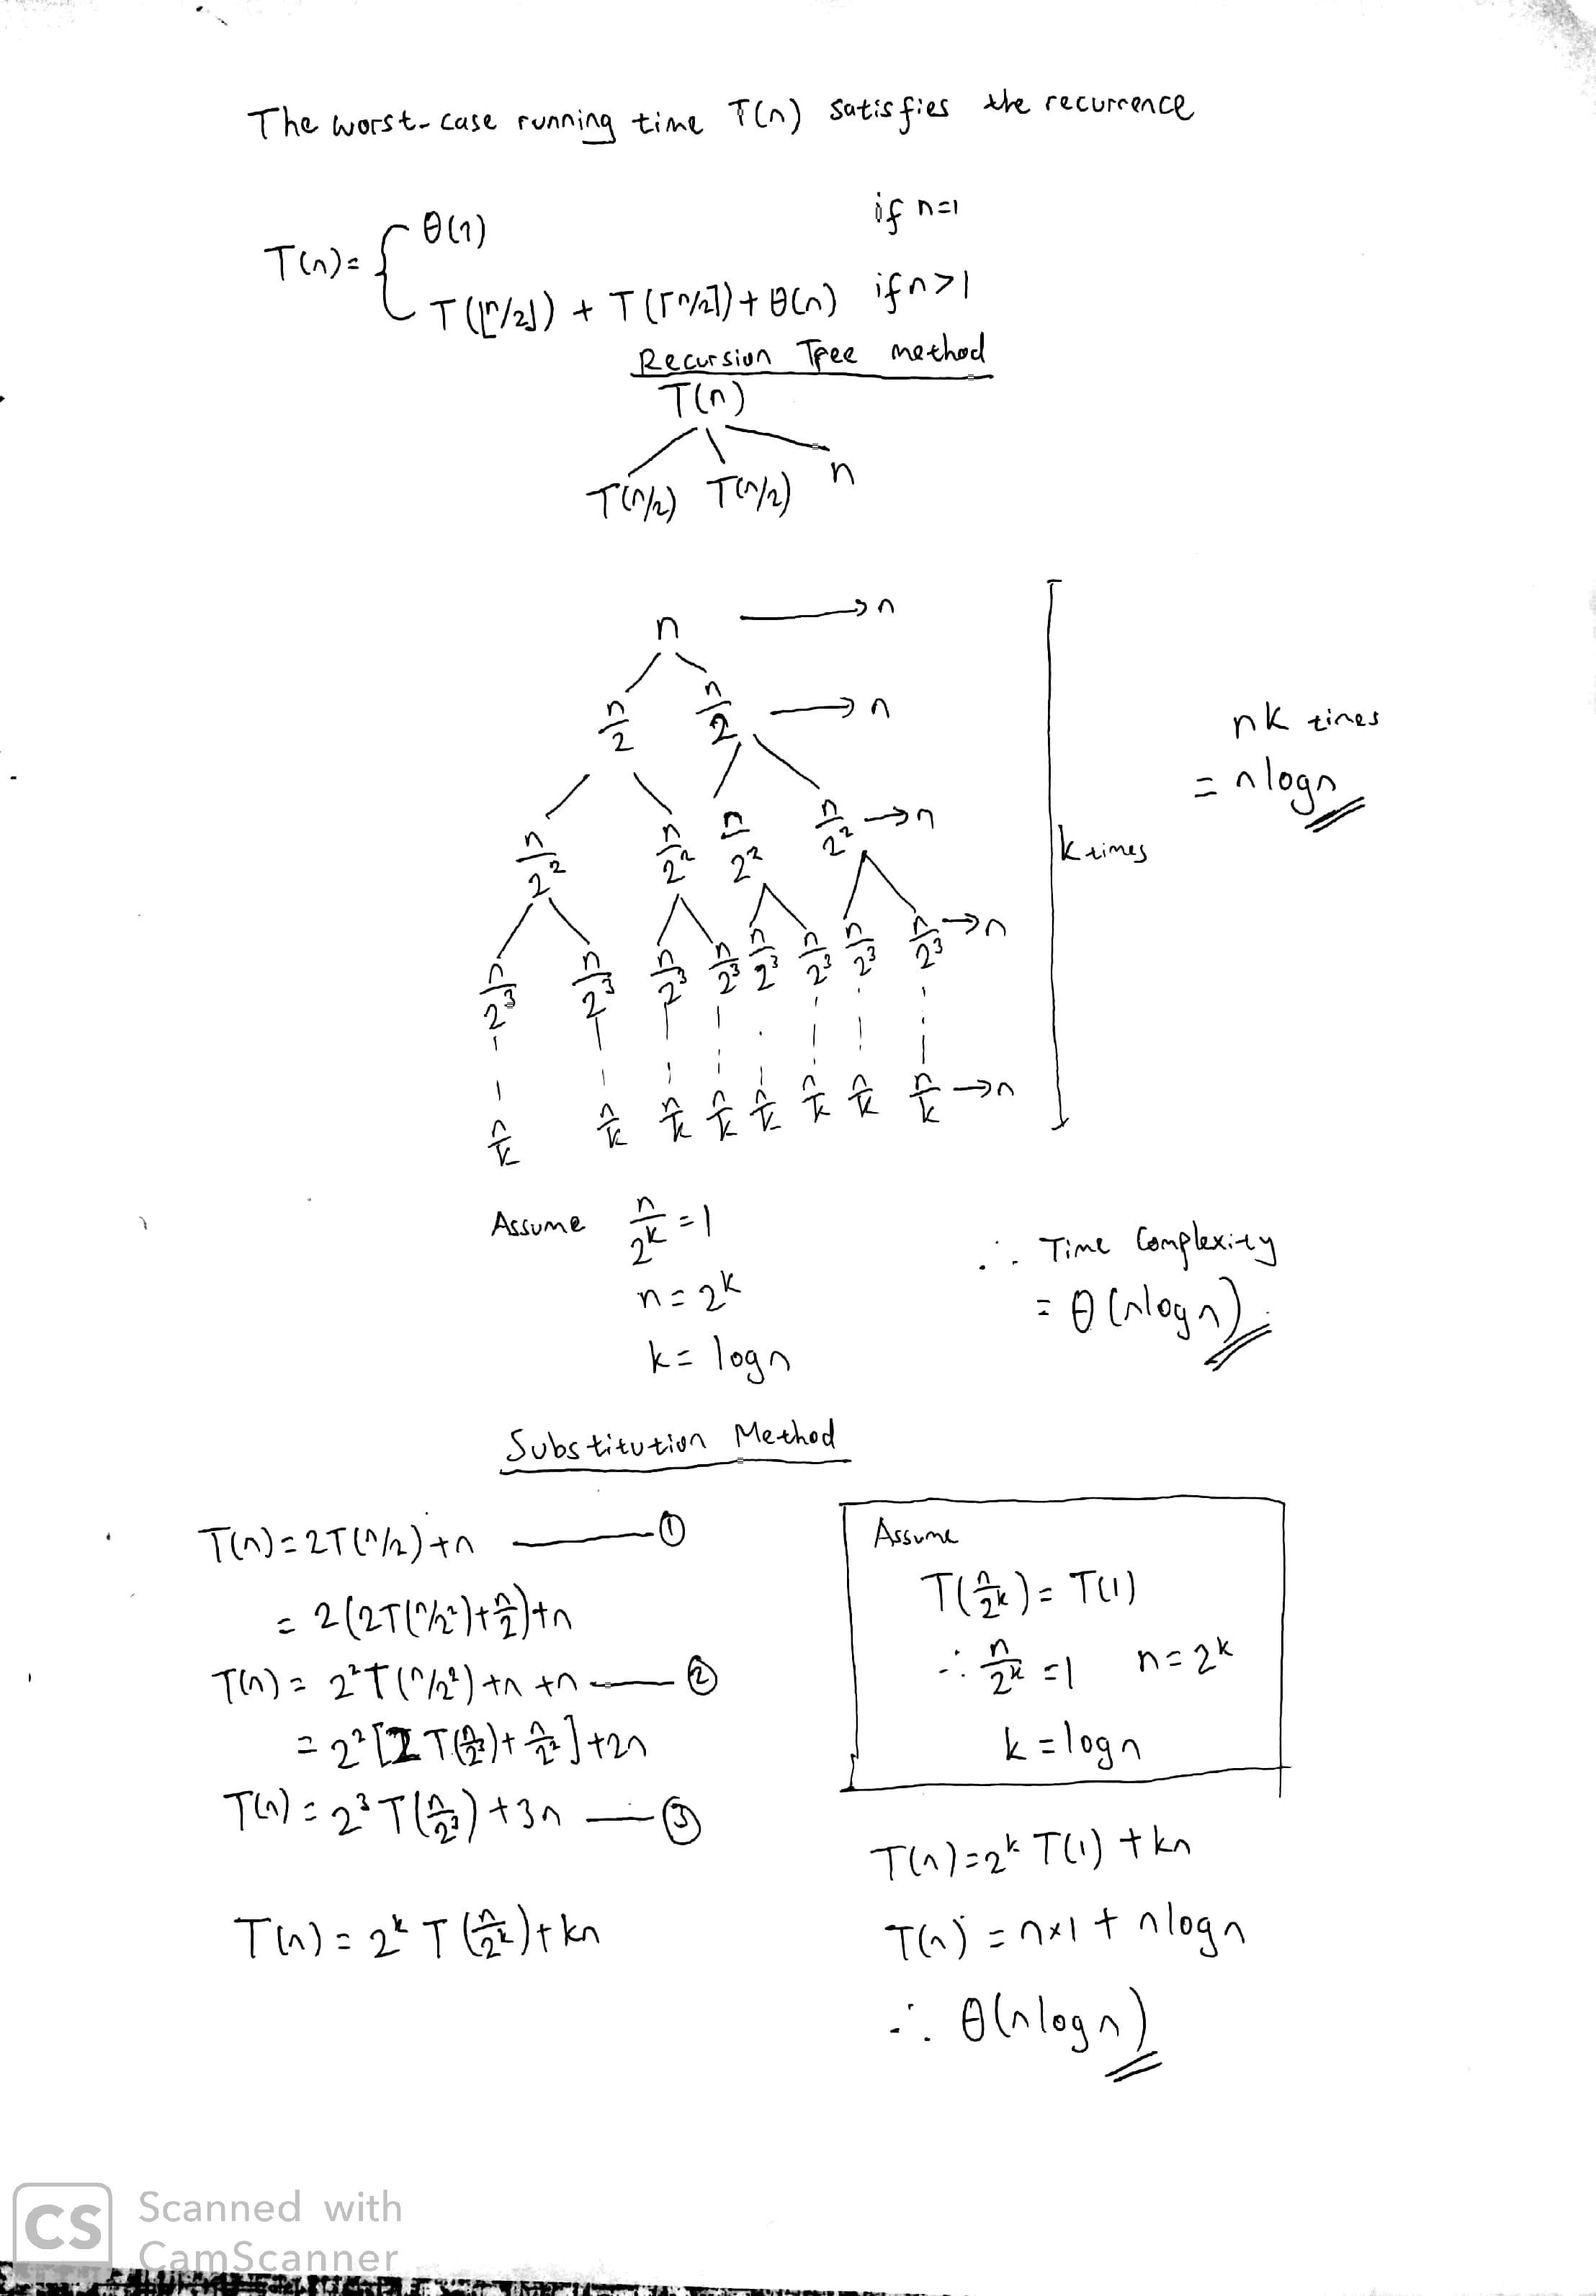 The worst-case running time T(n) satisfies the recurrence
T(n)= { θ(1) if n=1
T(⌊n/2⌋) + T(⌈n/2⌉) + θ(n) if n>1
Recursion Tree method
T(n)
T(n/2) T(n/2) n
n → n
n/2 n/2 → n
n/2² n/2² n/2² n/2² → n
n/2³ n/2³ n/2³ n/2³ n/2³ n/2³ n/2³ n/2³ → n
n/k n/k n/k n/k n/k n/k n/k n/k → n
k times
nk times
= nlogn
Assume n/2ᵏ = 1
n = 2ᵏ
k = logn
∴ Time Complexity
= θ(nlogn)
Substitution Method
T(n) = 2T(n/2)+n — ①
= 2(2T(n/2²)+n/2)+n
T(n) = 2²T(n/2²)+n+n — ②
= 2²[2T(n/2³)+n/2²]+2n
T(n) = 2³T(n/2³)+3n — ③
T(n) = 2ᵏT(n/2ᵏ)+kn
Assume
T(n/2ᵏ) = T(1)
∴ n/2ᵏ = 1 n = 2ᵏ
k = logn
T(n) = 2ᵏ T(1) + kn
T(n) = n×1 + nlogn
∴ θ(nlogn)
CS Scanned with
CamScanner